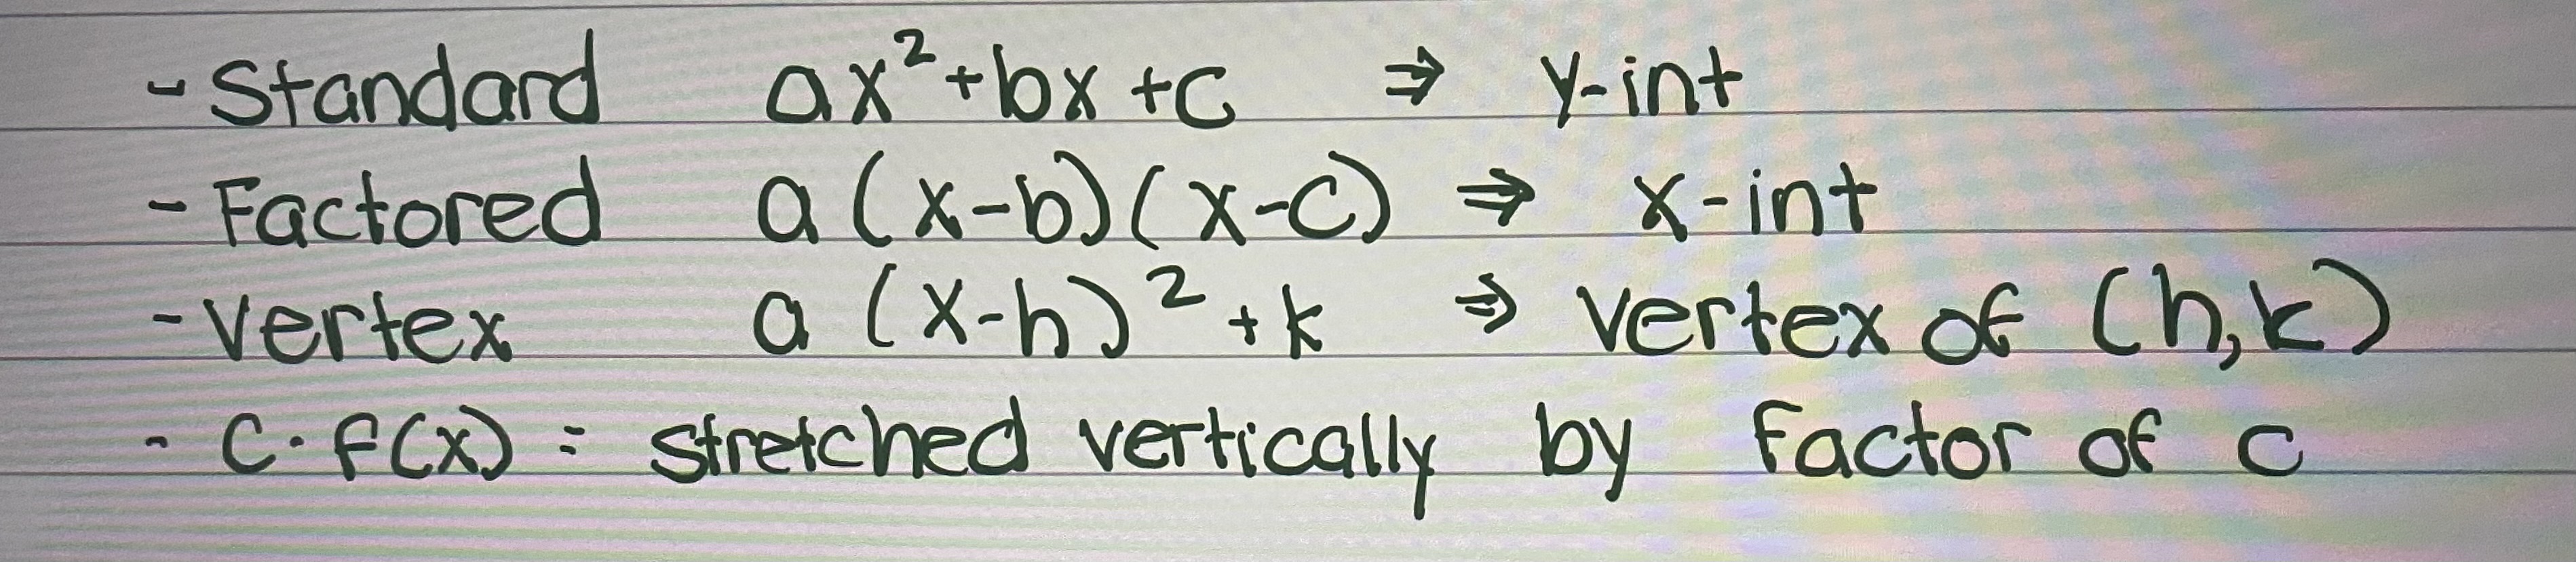 - Standard ax²+bx+c ⇒ y-int
- Factored a(x-b)(x-c) ⇒ x-int
- Vertex a(x-h)²+k ⇒ vertex of (h,k)
- C·f(x) = stretched vertically by factor of c